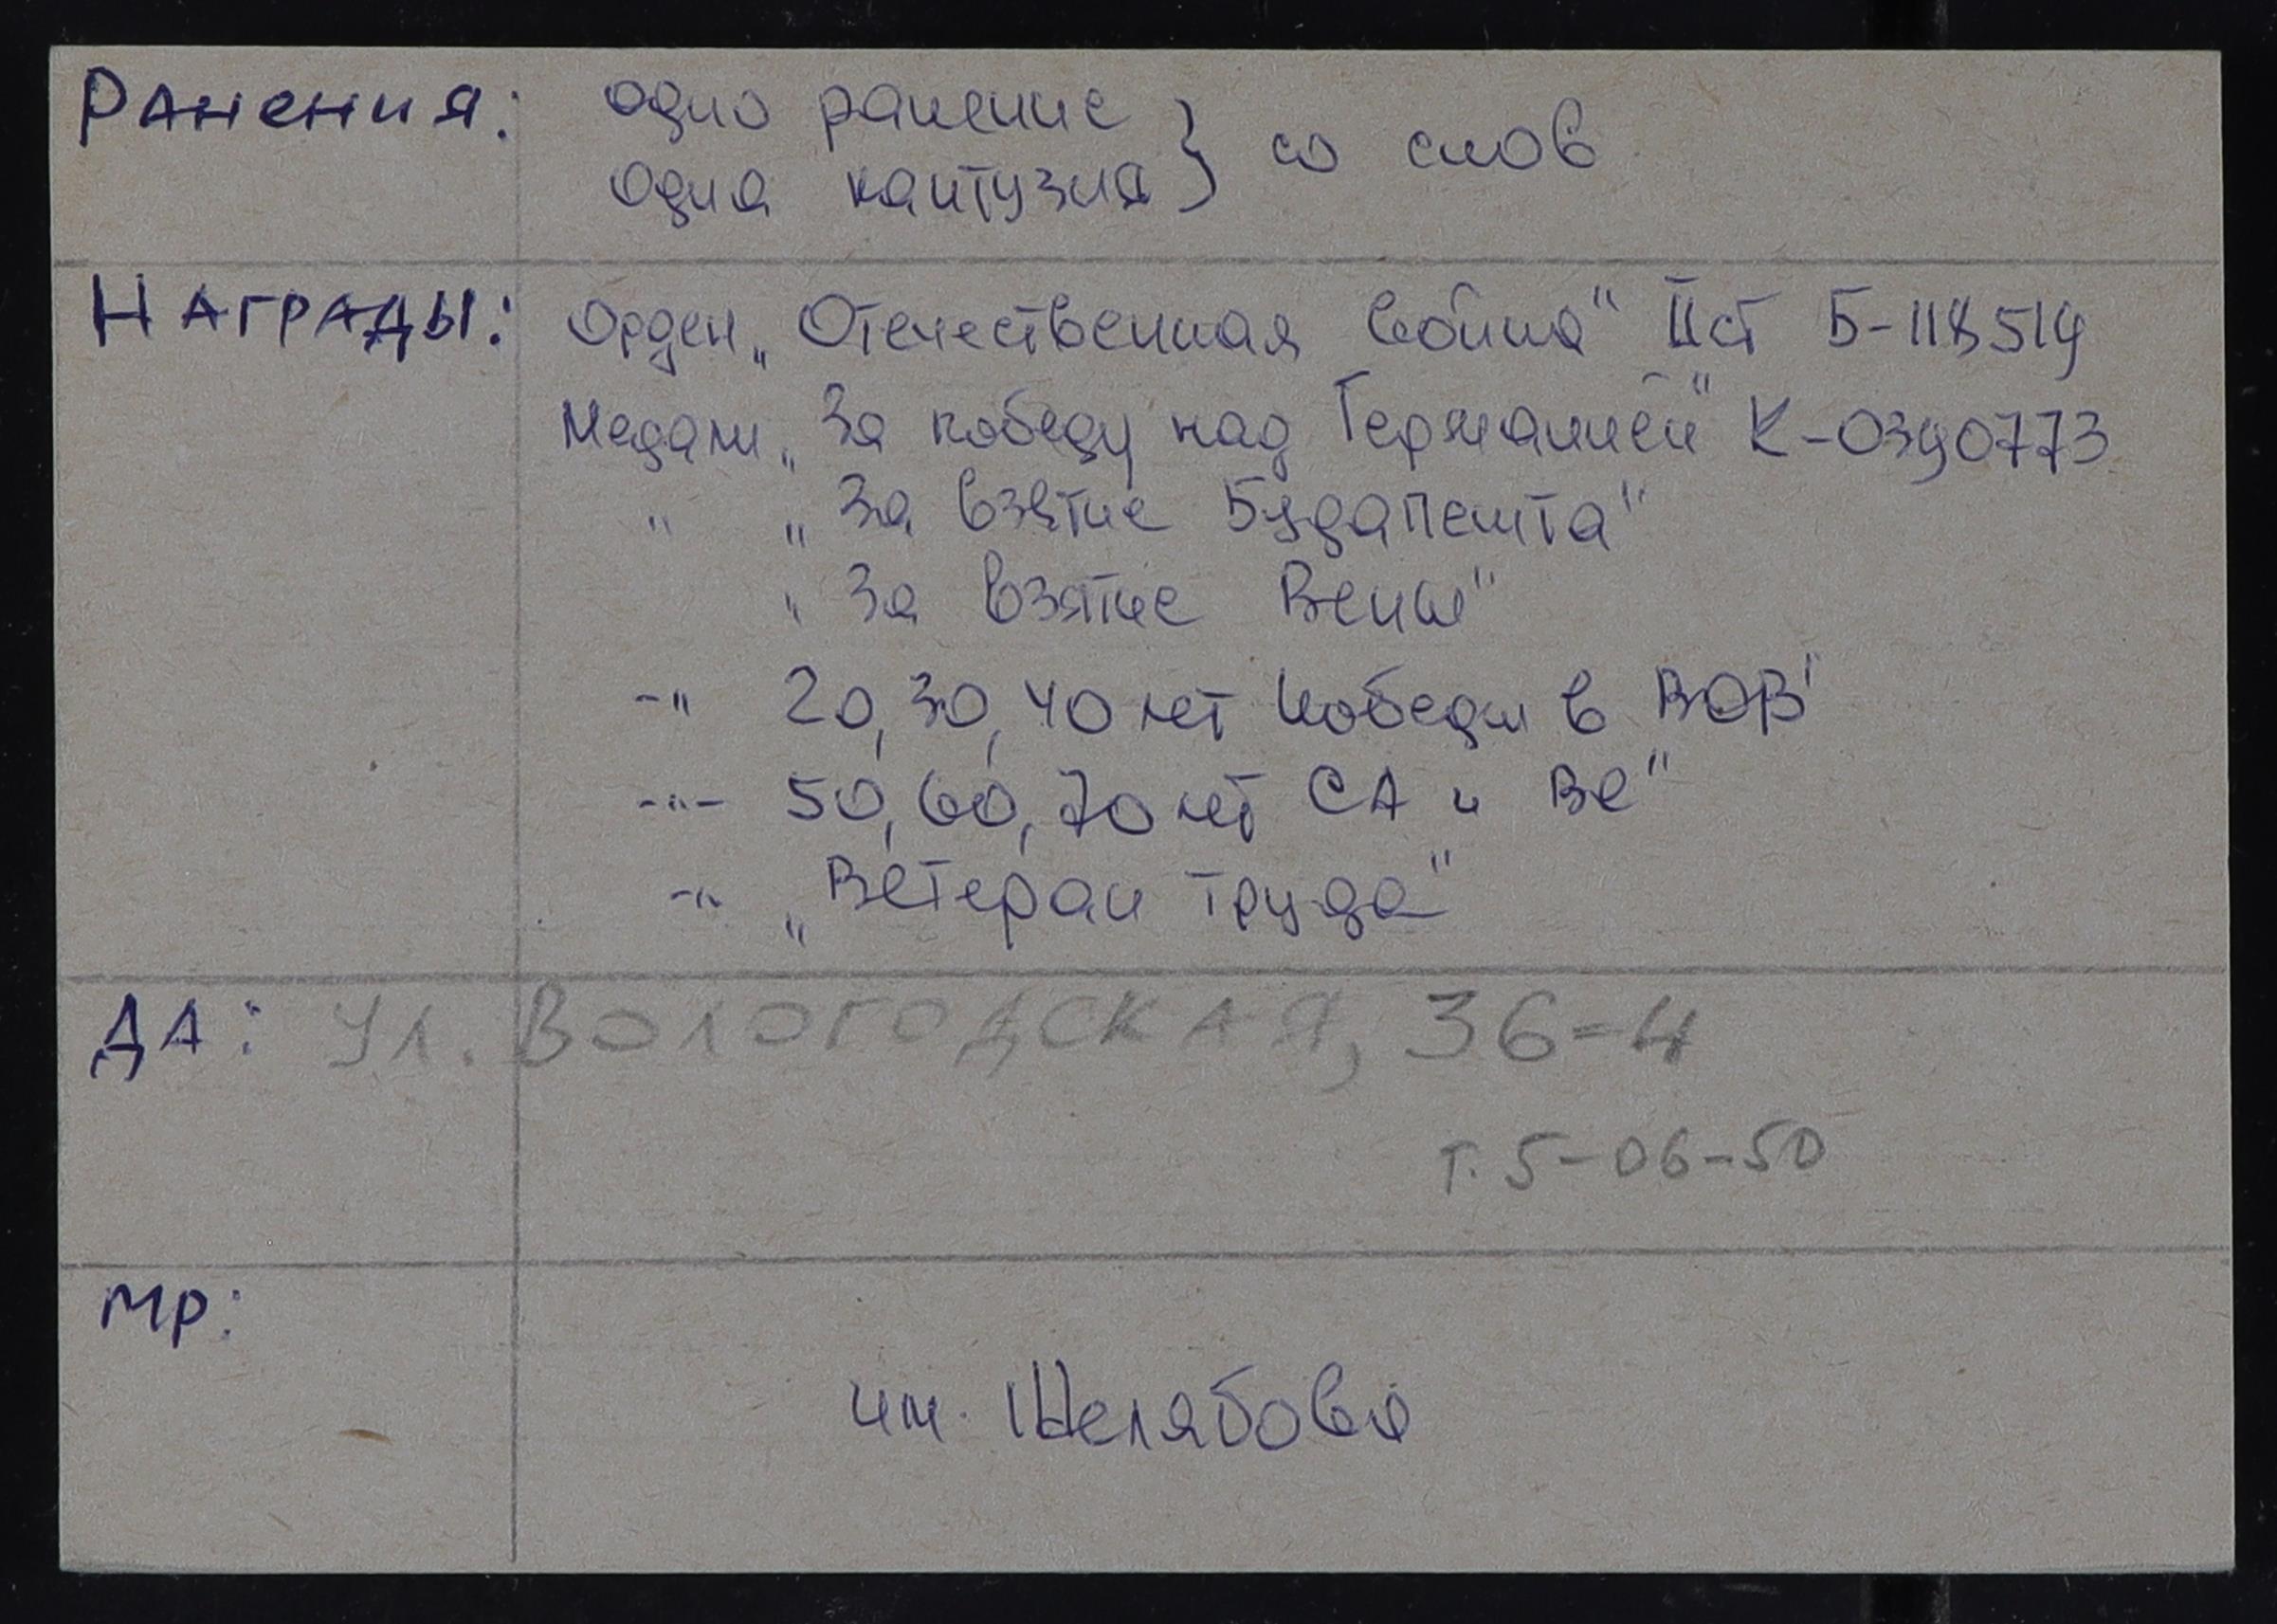 Ранения: одно ранение } со слов
одна кантузия
Награды: Орден „Отечественная война" II ст Б-118519
Медали „За победу над Германией" К-0390773
" „За взятие Будапешта"
„За взятие Вены"
-"- 20, 30, 40 лет Победы в ВОВ"
-"- 50, 60, 70 лет СА и ВС"
-"- „Ветеран труда"
ДА: ул. Вологодская, 36=4
т. 5-06-50
МР:
им. Желябова